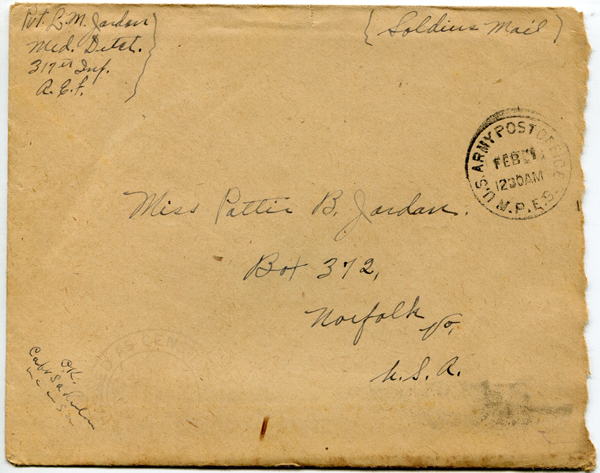 Pvt. L. M. Jordan
Med. Detch.
317th Inf.
A. E. F.
{ Soldiers Mail }
U.S. ARMY POST OFFICE
FEB
1230AM
M.P.E.S.
Miss Pattie B. Jordan.
Box 372,
Norfolk Va.
U. S. A.
O.K.